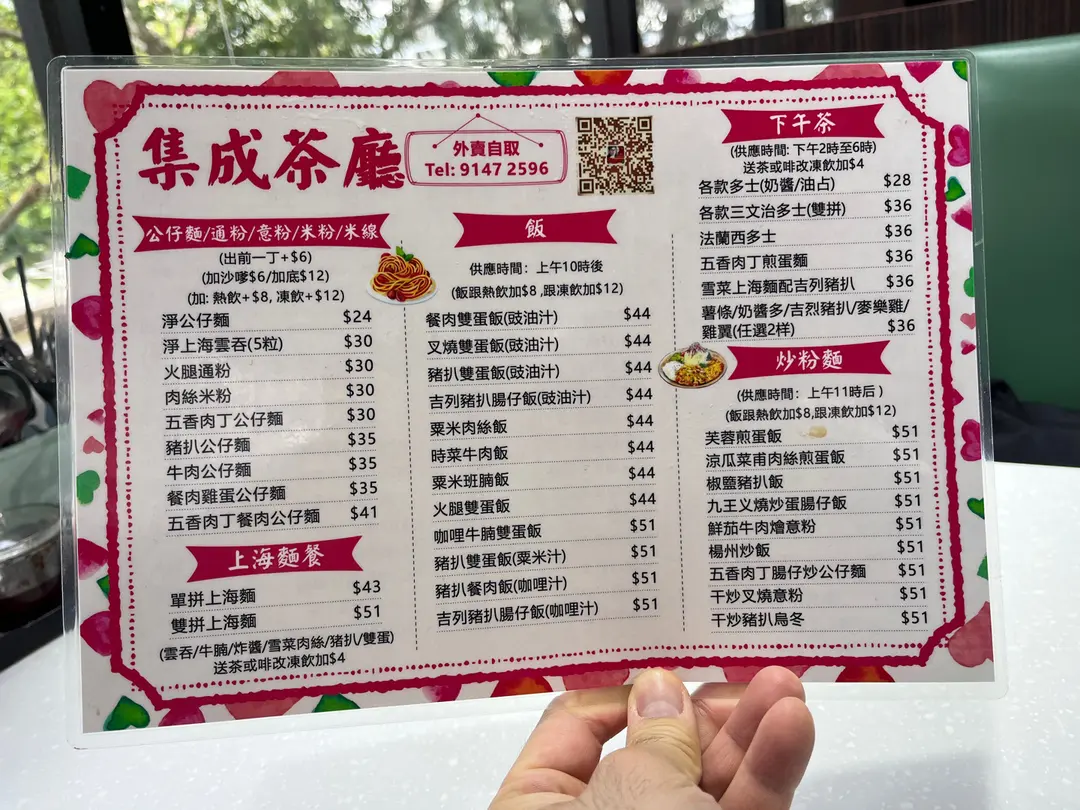 集成茶廳
外賣自取
Tel: 9147 2596
公仔麵/通粉/意粉/米粉/米線
(出前一丁+$6)
(加沙嗲$6/加底$12)
(加: 熱飲+$8, 凍飲+$12)
淨公仔麵 $24
淨上海雲吞(5粒) $30
火腿通粉 $30
肉絲米粉 $30
五香肉丁公仔麵 $30
豬扒公仔麵 $35
牛肉公仔麵 $35
餐肉雞蛋公仔麵 $35
五香肉丁餐肉公仔麵 $41
上海麵餐
單拼上海麵 $43
雙拼上海麵 $51
(雲吞/牛腩/炸醬/雪菜肉絲/豬扒/雙蛋)
送茶或啡改凍飲加$4
飯
供應時間: 上午10時後
(飯跟熱飲加$8 ,跟凍飲加$12)
餐肉雙蛋飯(豉油汁) $44
叉燒雙蛋飯(豉油汁) $44
豬扒雙蛋飯(豉油汁) $44
吉列豬扒腸仔飯(豉油汁) $44
粟米肉絲飯 $44
時菜牛肉飯 $44
粟米班腩飯 $44
火腿雙蛋飯 $44
咖哩牛腩雙蛋飯 $51
豬扒雙蛋飯(粟米汁) $51
豬扒餐肉飯(咖哩汁) $51
吉列豬扒腸仔飯(咖哩汁) $51
下午茶
(供應時間: 下午2時至6時)
送茶或啡改凍飲加$4
各款多士(奶醬/油占) $28
各款三文治多士(雙拼) $36
法蘭西多士 $36
五香肉丁煎蛋麵 $36
雪菜上海麵配吉列豬扒 $36
薯條/奶醬多/吉烈豬扒/麥樂雞/
雞翼(任選2样) $36
炒粉麵
(供應時間: 上午11時后 )
(飯跟熱飲加$8,跟凍飲加$12)
芙蓉煎蛋飯 $51
涼瓜菜甫肉絲煎蛋飯 $51
椒鹽豬扒飯 $51
九王义燒炒蛋腸仔飯 $51
鮮茄牛肉燴意粉 $51
楊州炒飯 $51
五香肉丁腸仔炒公仔麵 $51
干炒叉燒意粉 $51
干炒豬扒烏冬 $51